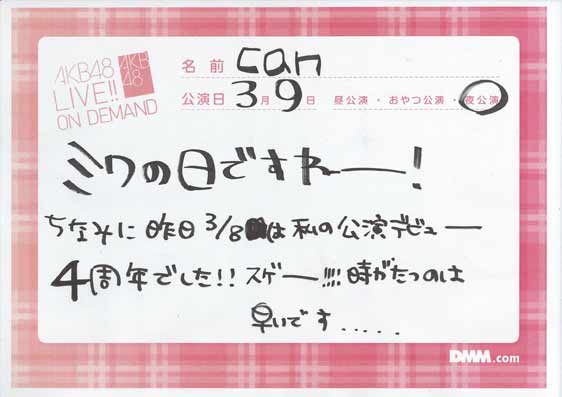 AKB48
LIVE!!
ON DEMAND
AKB
48
名前 can
公演日 3月9日 昼公演・おやつ公演・夜公演
ミワの日ですねー!
ちなみに昨日3/8は私の公演デビュー
4周年でした!!スゲー!!!!時がたつのは
早いです.....
DMM.com